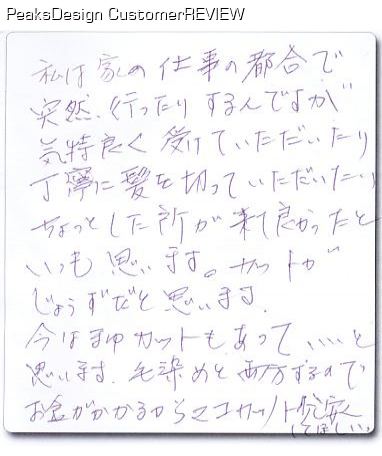 PeaksDesign CustomerREVIEW
私は家の仕事の都合で
突然、行ったりするんですが
気持良く受けていただいたり
丁寧に髪を切っていただいたり
ちょっとした所が来て良かったと
いつも思います。カットが
じょうずだと思います。
今はまゆカットもあっていいと
思います。毛染めと両方するので
お金がかかるから
安く
してほしい。